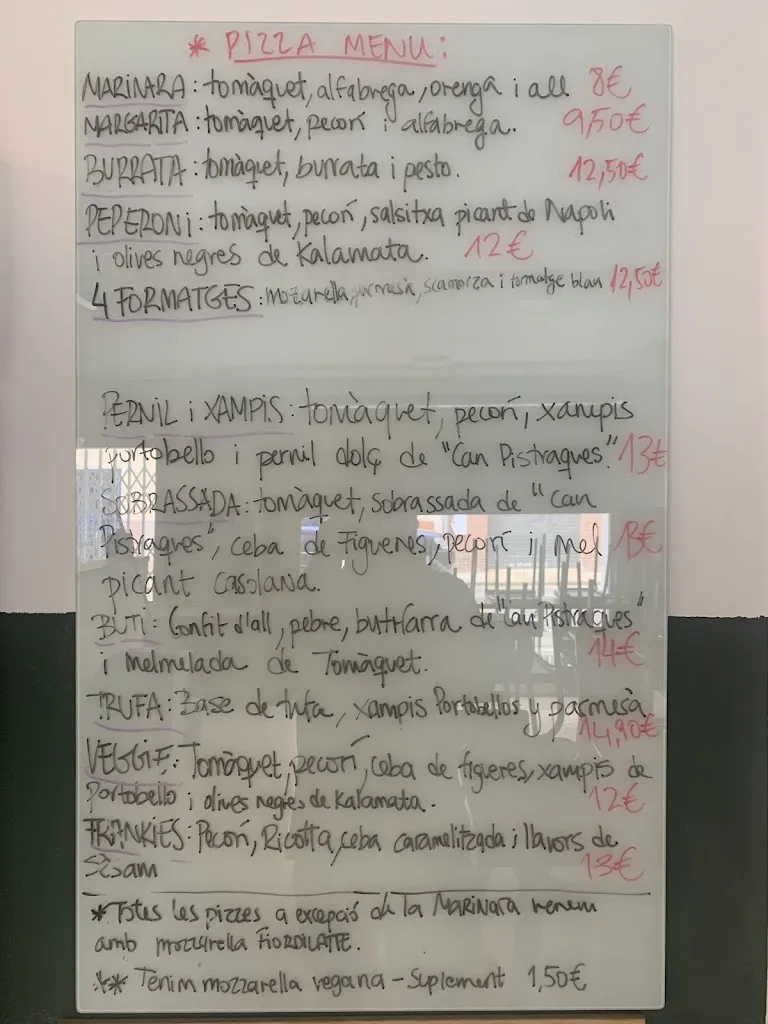 * PIZZA MENU:
MARINARA: tomàquet, alfabrega, orenga i all 8€
MARGARITA: tomàquet, pecorí i alfabrega. 9,50€
BURRATA: tomàquet, burrata i pesto. 12,50€
PEPERONi: tomàquet, pecorí, salsitxa picant de Napoli
i olives negres de Kalamata. 12€
4 FORMATGES: Mozarella, parmesà, scamorza i formatge blau 12,50€
PERNIL i XAMPIS: tomàquet, pecorí, xampis
portobello i pernil dolç de "Can Pistraques". 13€
SOBRASSADA: tomàquet, sobrassada de "Can
Pistraques", ceba de Figueres, pecorí i mel 13€
picant casolana.
BUTi: Confit d'all, pebre, butifarra de "Can Pistraques"
i melmelada de Tomàquet. 14€
TRUFA: Base de tufa, xampis Portobellos y parmesà
14,90€
VEGGIE: Tomàquet, pecorí, ceba de figueres, xampis de
Portobello i olives negres de Kalamata. 12€
FRANKIES: Pecorí, Ricotta, ceba caramelitzada i llavors de
Sèsam 13€
*Totes les pizzes a excepció de la MARINARA venen
amb mozzarella FIORDILATTE.
** Tenim mozzarella vegana - Suplement 1,50€